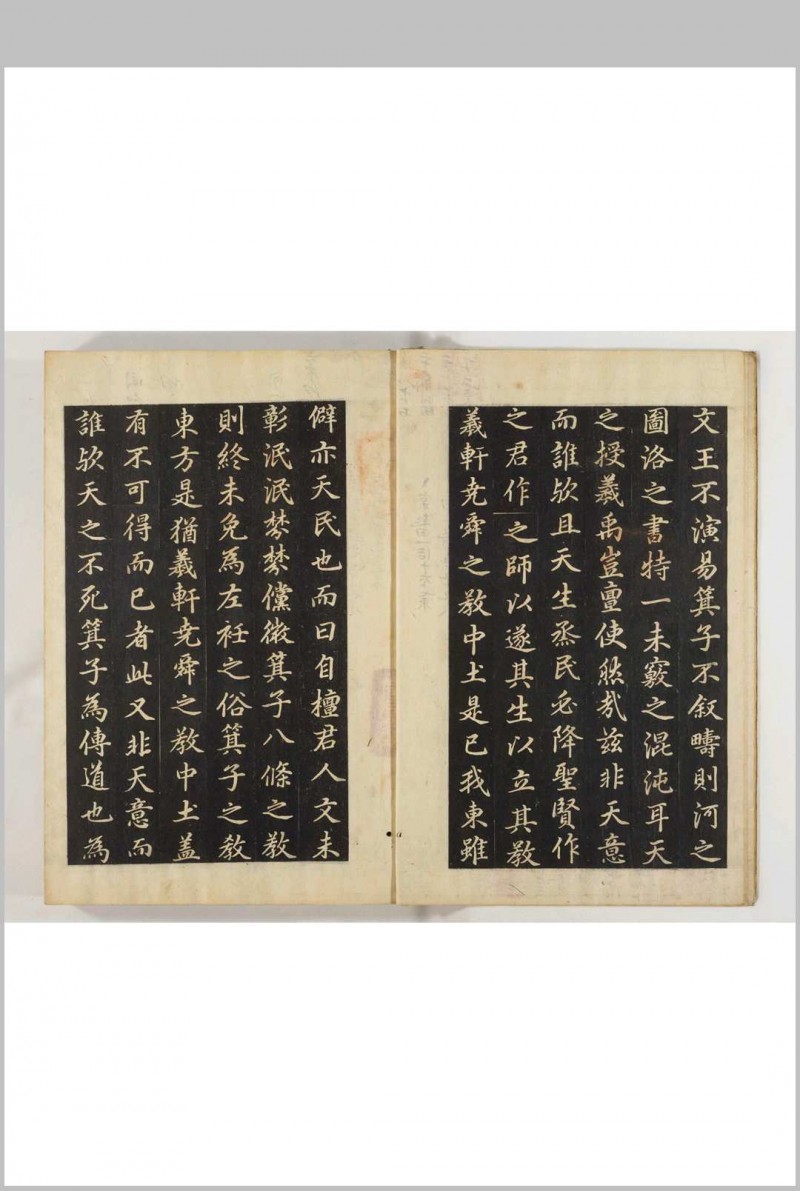 文王不演易箕子不叙疇則河之
圖洛之書特一未竅之混沌耳天
之授羲禹豈亶使然哉茲非天意
而誰欤且天生烝民必降聖賢作
之君作之師以遂其生以立其教
羲軒尭舜之教中土是已我東雖
僻亦天民也而曰自檀君人文未
彰泯泯棼棼儻微箕子八條之教
則終未免為左衽之俗箕子之教
東方是猶羲軒尭舜之教中土盖
有不可得而已者此又非天意而
誰欤天之不死箕子為傳道也為